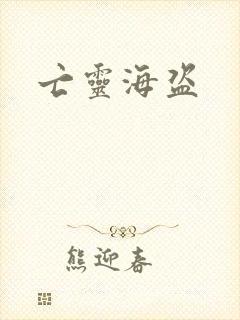 亡靈海盜
熊迎春